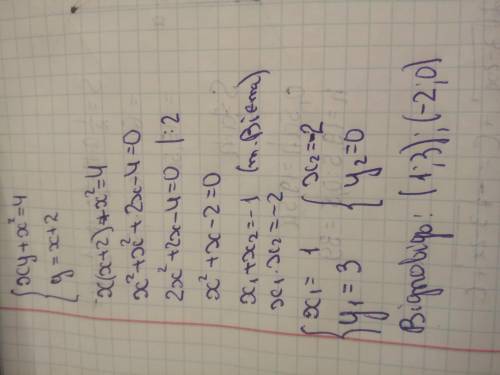 { xy + x² = 4
{ y = x + 2
x(x+2) + x² = 4
x² + x² + 2x - 4 = 0
2x² + 2x - 4 = 0 |:2
x² + x - 2 = 0
x₁ + x₂ = -1 (т. Вієта)
x₁ · x₂ = -2
{ x₁ = 1 { x₂ = -2
{ y₁ = 3 { y₂ = 0
Відповідь: (1;3);(-2;0)